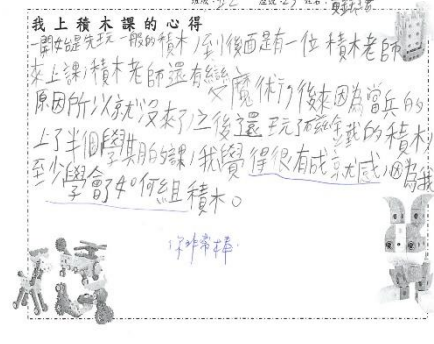 我上積木課的心得
一開始是先玩一般的積木,到後面是有一位積木老師
來上課,積木老師還有變魔術,後來因為當兵的
原因所以就沒來了,之後還玩了磁鐵的積木,
上了半個學期的課,我覺得很有成就感,因為我
至少學會了如何組積木。
你非常棒.